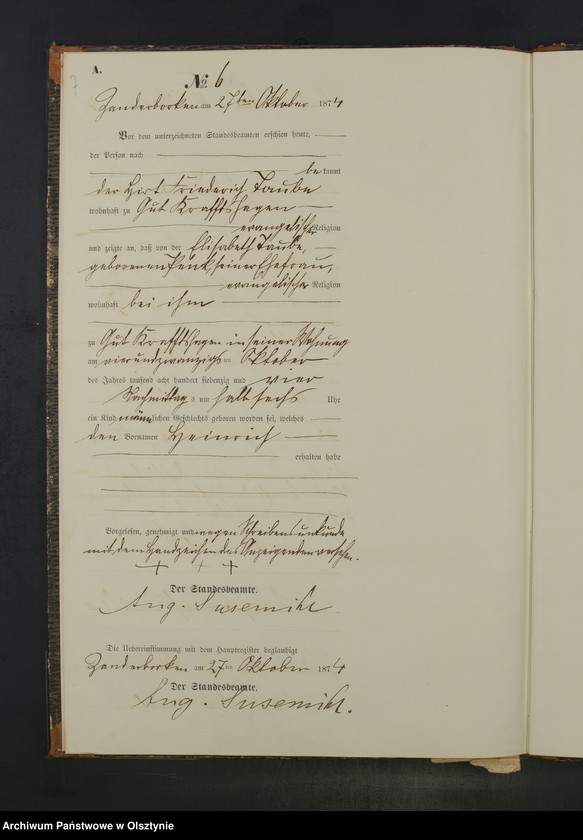 A.
7
№ 6
Zanderborken am 27ten Oktober 1874
Vor dem unterzeichneten Standesbeamten erschien heute,
der Person nach
bekannt
der Hirt Friederich Taube
wohnhaft zu Gut Krafftshagen
evangelischer Religion
und zeigte an, daß von der Elisabeth Taube,
geborenen Penk seiner Ehefrau,
evangelischer Religion
wohnhaft bei ihm
zu Gut Krafftshagen in seiner Wohnung
am vierundzwanzigsten Oktober
des Jahres tausend acht hundert siebenzig und vier
Nachmittags um halb sechs Uhr
ein Kind männlichen Geschlechts geboren worden sei, welches
den Vornamen Heinrich
erhalten habe
Vorgelesen, genehmigt und wegen Schreibensunkunde
mit dem Handzeichen des Anzeigenden versehen.
+ + +
Der Standesbeamte.
Aug. Susemihl
Die Uebereinstimmung mit dem Hauptregister beglaubigt
Zanderborken am 27ten Oktober 1874
Der Standesbeamte.
Aug. Susemihl.
Archiwum Państwowe w Olsztynie